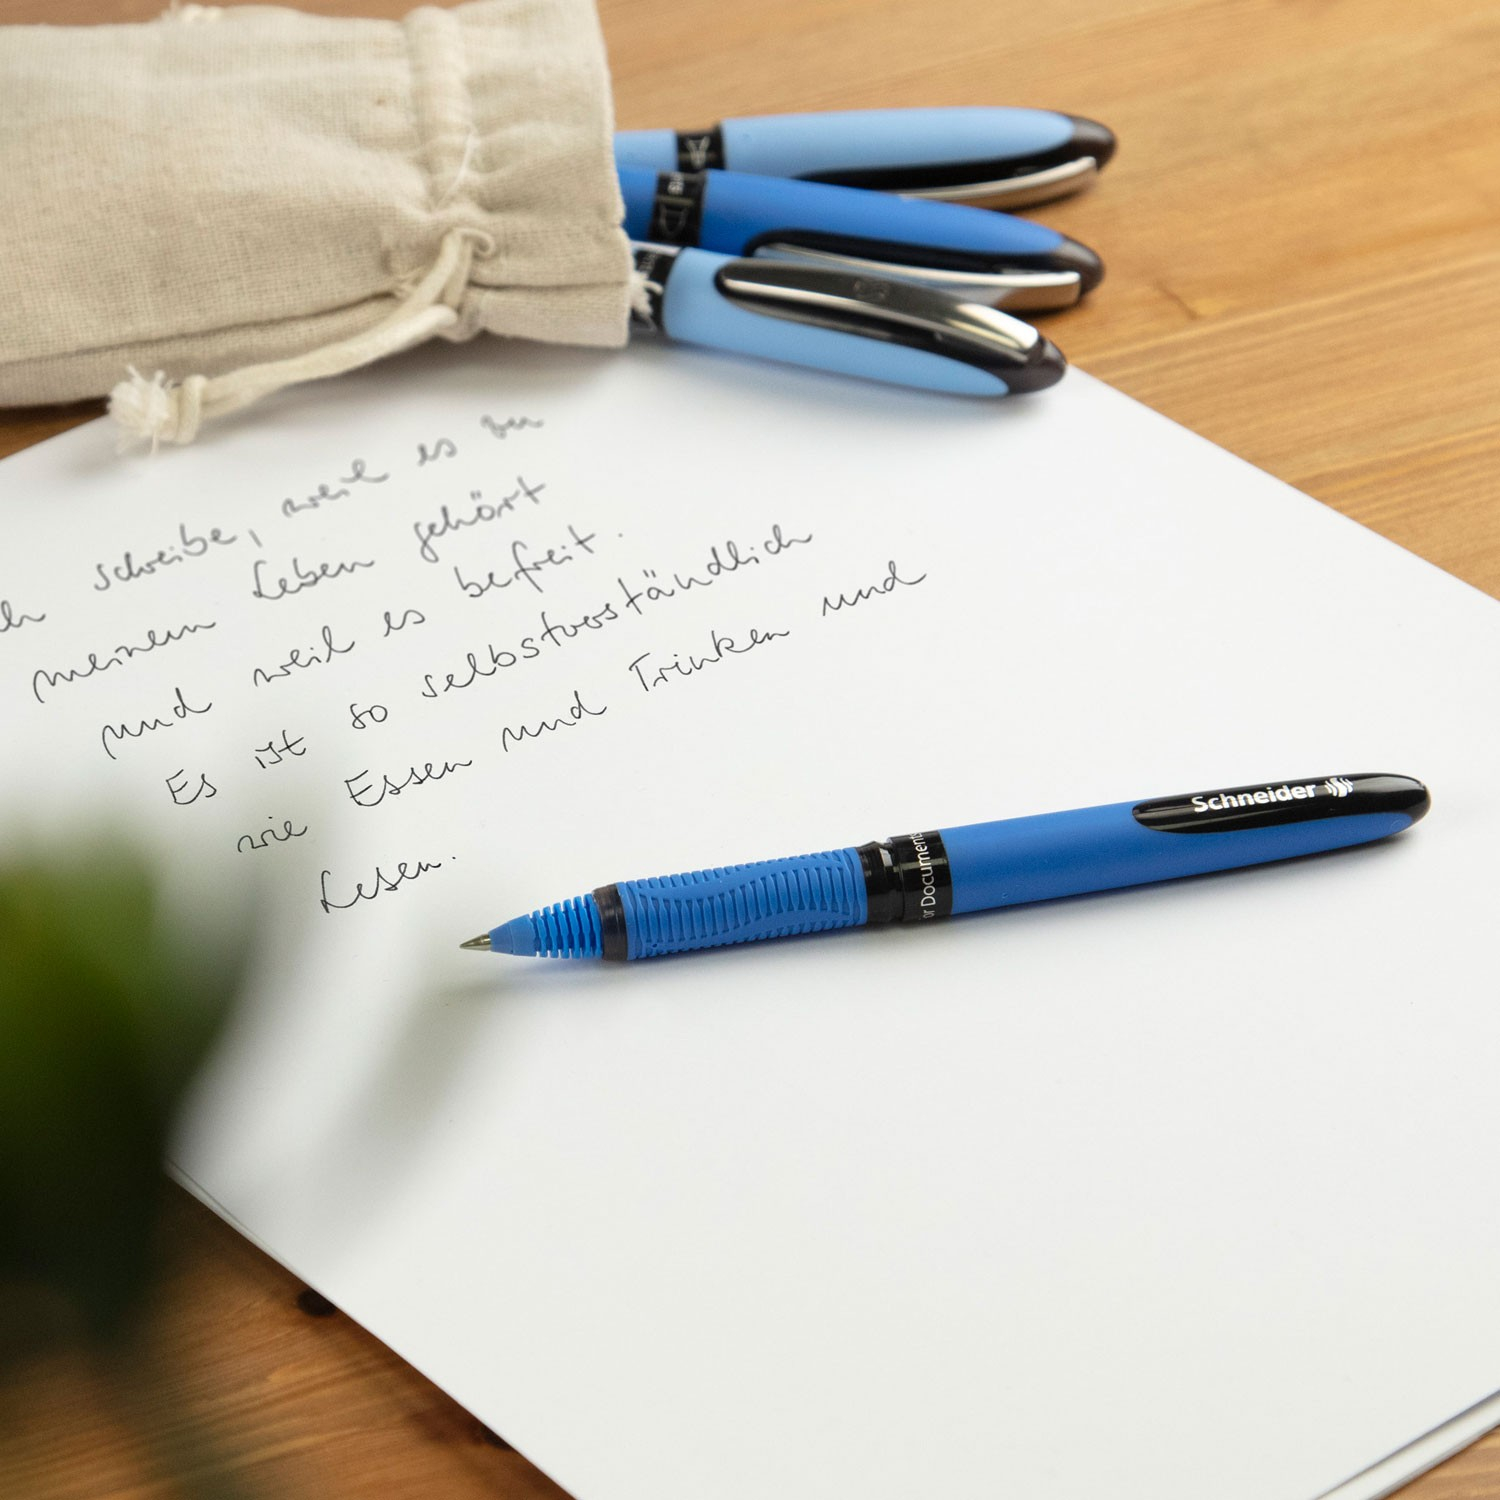 ch schreibe, weil es zu
meinem Leben gehört
und weil es befreit.
Es ist so selbstverständlich
wie Essen und Trinken und
Lesen.
Schneider
or Documents